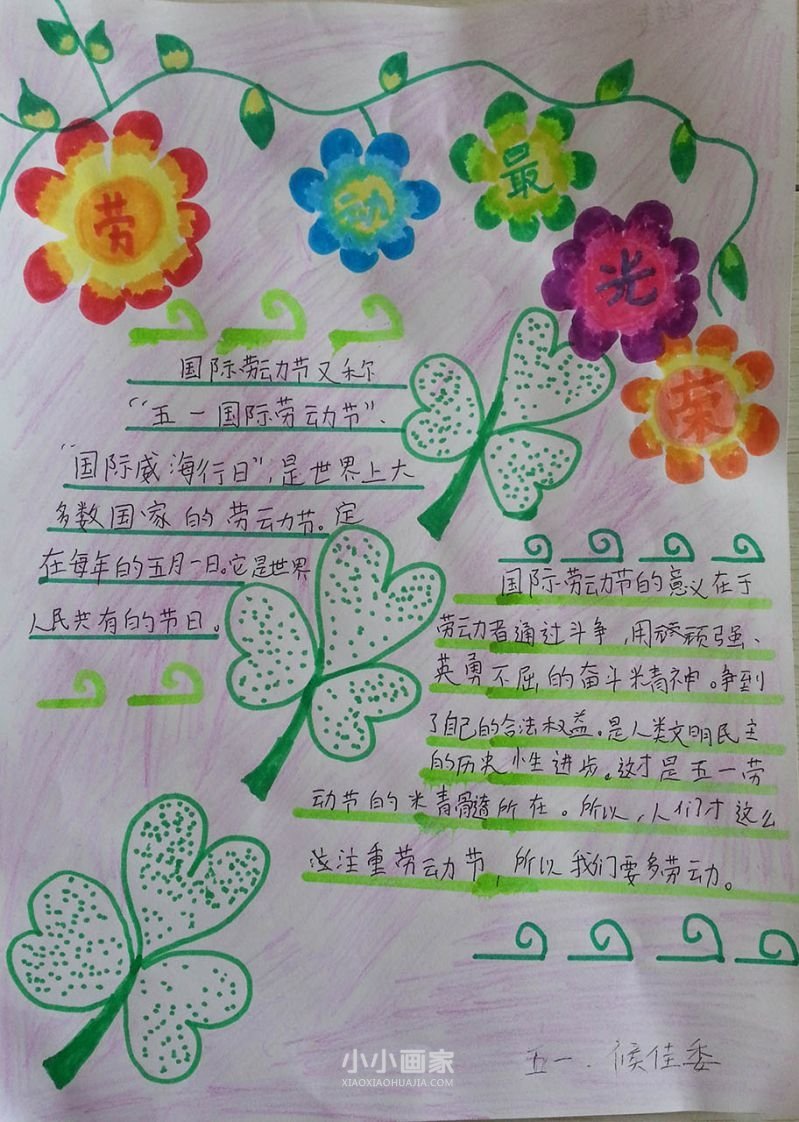 劳动最光荣
国际劳动节又称
“五一国际劳动节”、
“国际威海行日”,是世界上大
多数国家的劳动节。定
在每年的五月一日。它是世界
人民共有的节日。
国际劳动节的意义在于
劳动者通过斗争,用顽强、
英勇不屈的奋斗精神。争到
了自己的合法权益。是人类文明民主
的历史性进步。这才是五一劳
动节的精髓所在。所以,人们才这么
注重劳动节,所以我们要多劳动。
五一.候佳委
小小画家
XIAOXIAOHUAJIA.COM